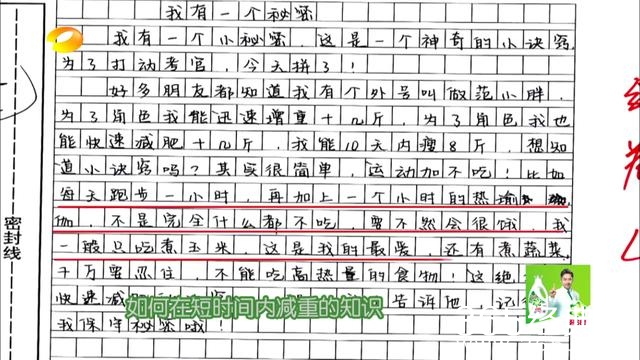 我有一个秘密
我有一个小秘密，这是一个神奇的小诀窍，
为了打动考官，今天拼了！
好多朋友都知道我有个外号叫做范小胖，
为了角色我能迅速增重十几斤，为了角色我也
能快速减肥十几斤，我能10天内瘦8斤，想知
道小诀窍吗？其实很简单，运动加不吃！比如
每天跑步一小时，再加上一个小时的热瑜
伽，不是完全什么都不吃，要不然会很饿，我
一般只吃煮玉米，这是我的最爱，还有煮蔬菜
千万要忍住，不能吃高热量的食物！这绝
快速减肥
告诉他，记得
我保守秘密哦！
密封线
如何在短时间内减重的知识